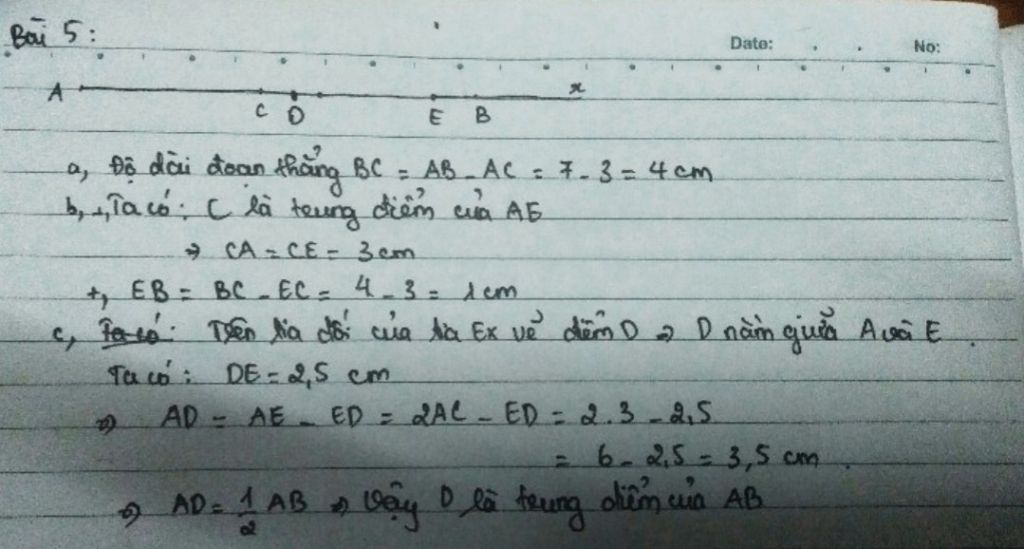 Bài 5:
Date: No:
A C D E B x
a, Độ dài đoạn thẳng BC = AB - AC = 7 - 3 = 4 cm
b, +, Ta có: C là trung điểm của AE
⇒ CA = CE = 3 cm
+, EB = BC - EC = 4 - 3 = 1 cm
c, Ta có: Trên tia đối của tia Ex vẽ điểm D ⇒ D nằm giữa A và E.
Ta có: DE = 2,5 cm
⇒ AD = AE - ED = 2AC - ED = 2.3 - 2,5
= 6 - 2,5 = 3,5 cm.
⇒ AD = 1/2 AB ⇒ Vậy D là trung điểm của AB